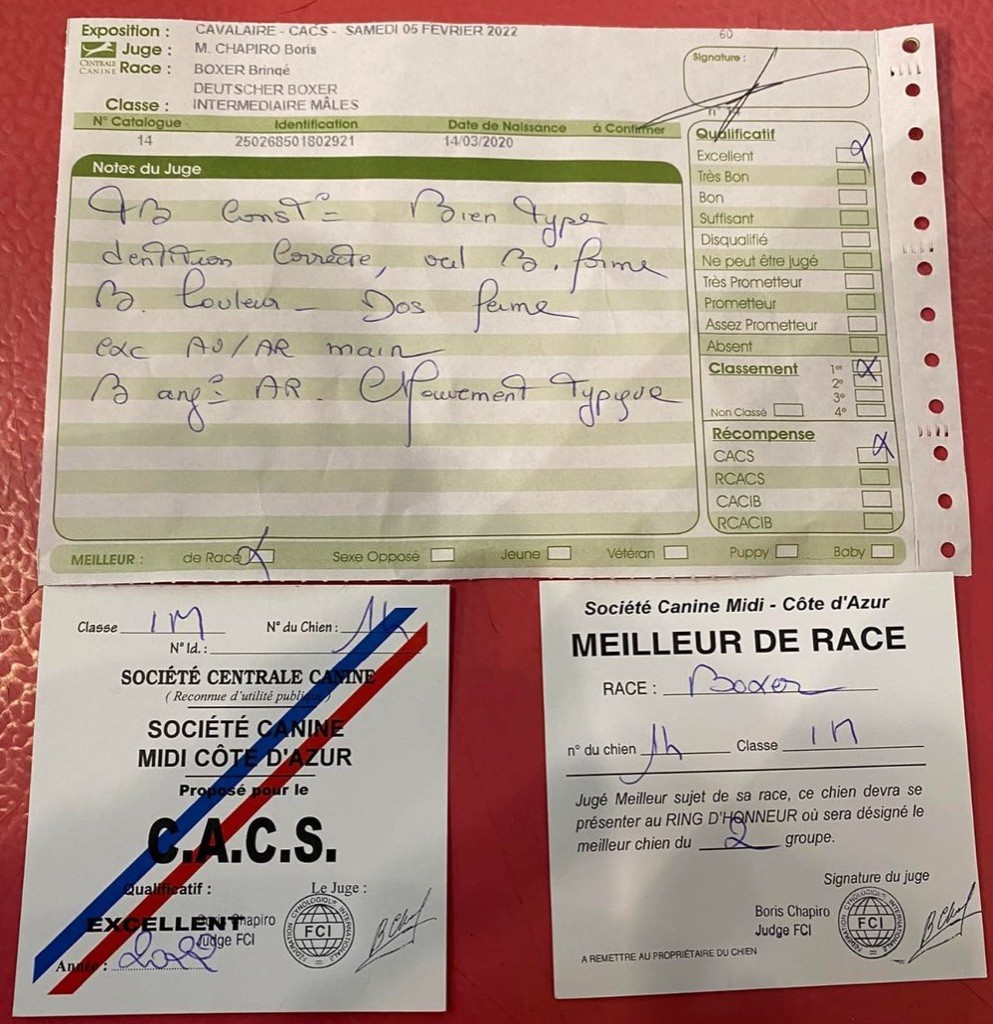 Exposition : CAVALAIRE - CACS - SAMEDI 05 FEVRIER 2022
60
CENTRALE CANINE
Juge : M. CHAPIRO Boris
Race : BOXER Bringé
DEUTSCHER BOXER
Classe : INTERMEDIAIRE MÂLES
Signature :
N° Catalogue Identification Date de Naissance à Confirmer
14 250268501802921 14/03/2020
Notes du Juge
TB Const° Bien Type
dentition Correcte, oeil B. forme
B. Couleur - Dos ferme
exc AV/AR main
B ang° AR. Mouvement Typyque
Qualificatif
Excellent
Très Bon
Bon
Suffisant
Disqualifié
Ne peut être jugé
Très Prometteur
Prometteur
Assez Prometteur
Absent
Classement 1er
2e
3e
Non Classé 4e
Récompense
CACS
RCACS
CACIB
RCACIB
MEILLEUR : de Race Sexe Opposé Jeune Vétéran Puppy Baby
Classe IM N° du Chien : 14
N° Id. :
SOCIÉTÉ CENTRALE CANINE
( Reconnue d'utilité publique )
SOCIÉTÉ CANINE
MIDI CÔTE D'AZUR
Proposé pour le
C.A.C.S.
Qualificatif : Le Juge :
EXCELLENT
Boris Chapiro
Judge FCI
FÉDÉRATION CYNOLOGIQUE INTERNATIONALE
FCI
B Chap
Année : 2022
Société Canine Midi - Côte d'Azur
MEILLEUR DE RACE
RACE : Boxer
n° du chien 14 Classe IM
Jugé Meilleur sujet de sa race, ce chien devra se
présenter au RING D'HONNEUR où sera désigné le
meilleur chien du 2 groupe.
Signature du juge
Boris Chapiro
Judge FCI
FÉDÉRATION CYNOLOGIQUE INTERNATIONALE
FCI
B Chap
A REMETTRE AU PROPRIÉTAIRE DU CHIEN